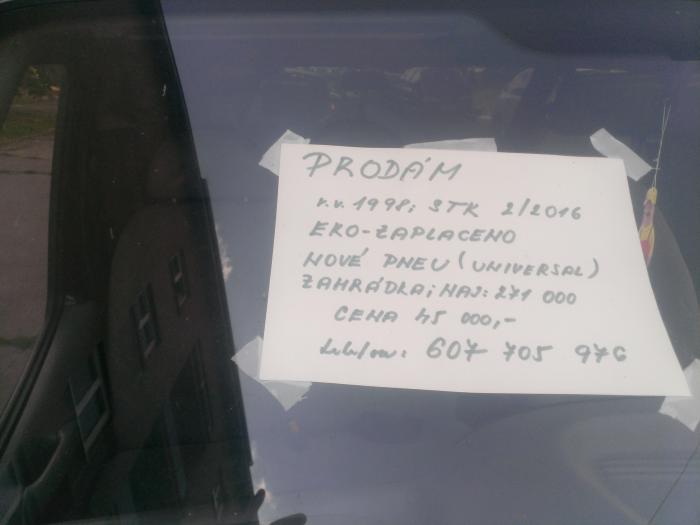 PRODÁM
r.v. 1998; STK 2/2016
EKO-ZAPLACENO
NOVÉ PNEU (UNIVERSAL)
ZAHRÁDKA; NAJ: 271 000
CENA 45 000,-
telefon: 607 705 976